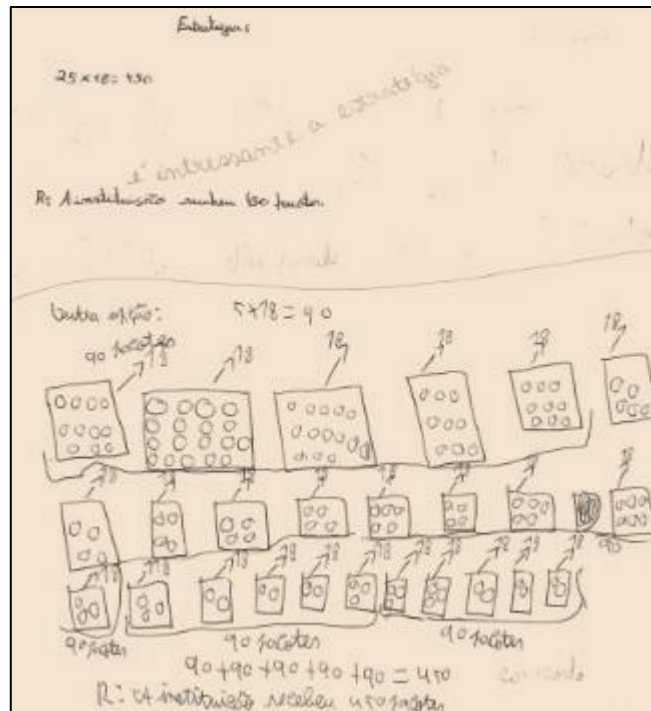 Estratégias
25 x 18 = 450
é intressante a estratégia
R: A instituição recebeu 450 pacotes.
Outra opção: 5 x 18 = 90
90 pacotes
18 18 18 18 18 18
18 18 18 18 18 18 18 18
90
18 18 18 18 18 18 18 18 18 18 18
90 pacotes 90 pacotes 90 pacotes
90 + 90 + 90 + 90 + 90 = 450
R: A instituição recebeu 450 pacotes